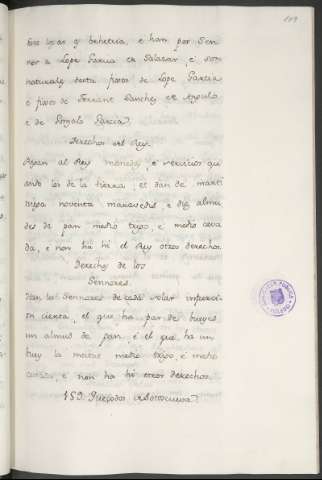 109
Este logar es behetria, e han por Sen
nor a Lope Garcia de Salazar, e son
naturales desta fijos de Lope Garcia
e fijos de Ferrant Sanchez de
e de Gonzalo Garcia.
Derechos del Rey.
Pagan al Rey moneda, e servicios qu
ando los de la tierra, et dan de marti
niega noventa maravedis e diez almu
des de pan medio trigo, e medio ceva
da, e non ha hi el Rey otros derechos.
Derechos de los
Sennores.
Dan los Sennores de cada solar
cierta, el que ha par de bueyes,
un almud de pan, e el que ha un
buey la meitat medio trigo, e medio
cevada, e non ha hi otros derechos.
159.